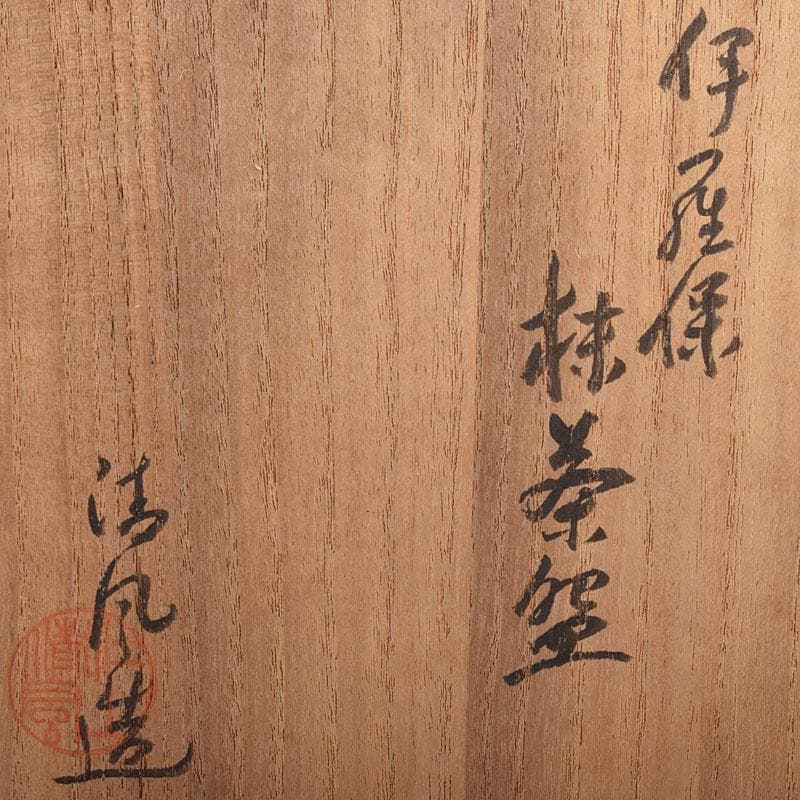 伊羅保
抹茶盌
清風造